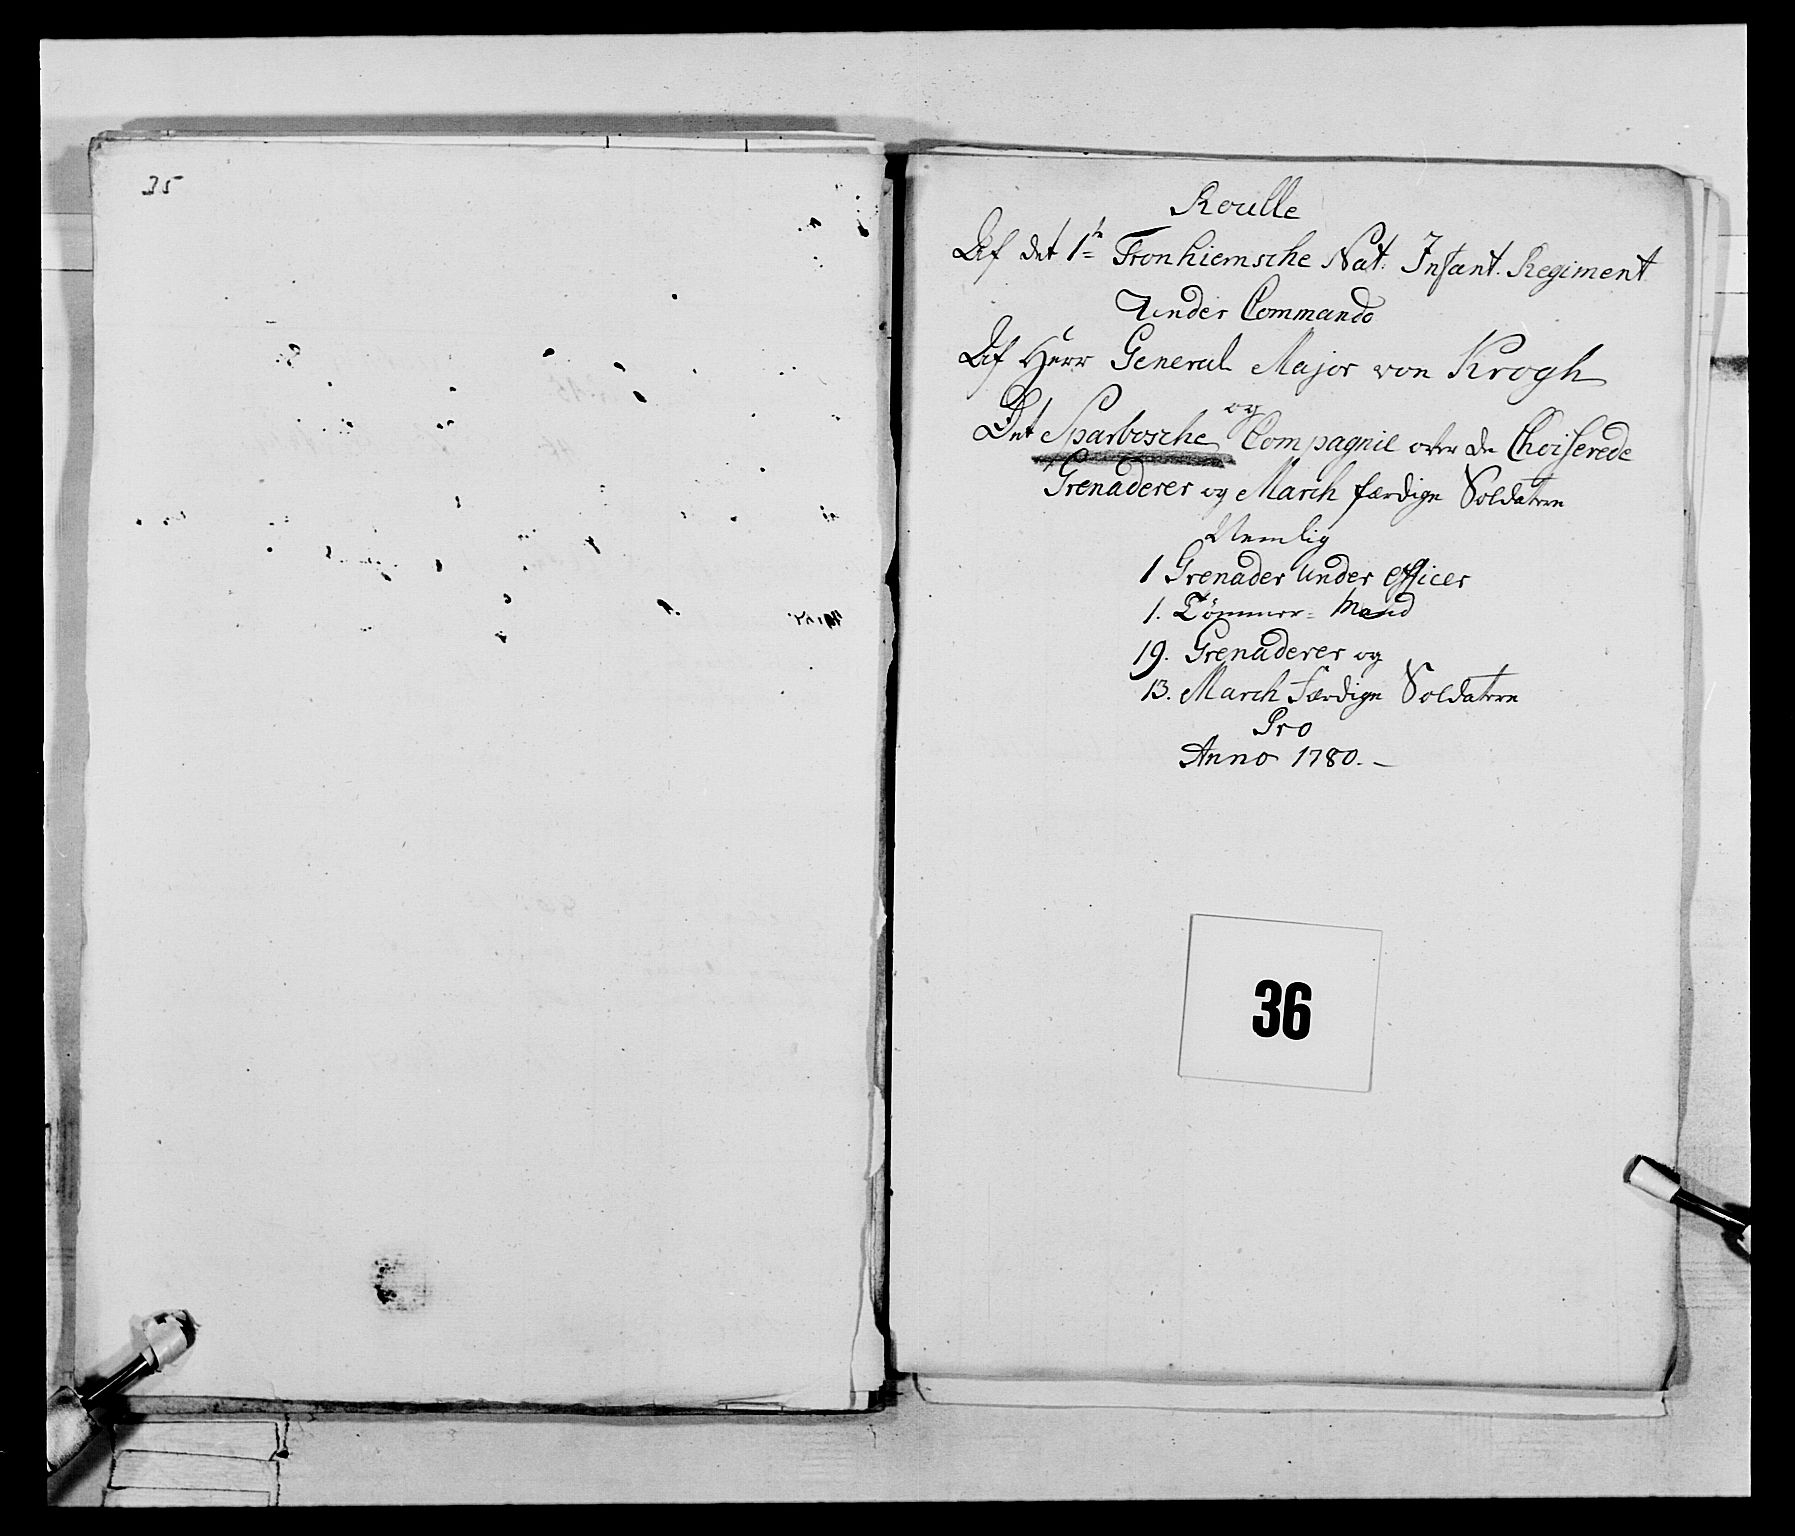 35
Roulle
Af det 1te Tronhiemsche Nat: Infant. Regiment
Under Commando
Af Herr General Major von Krogh
og
Det Sparbosche Compagnie over de Choiserede
Grenaderer og March færdige Soldatern
Nemlig
1 Grenader Under officer
1. Tömmer= Mand
19. Grenaderer og
13. March færdige Soldatern
Pro
Anno 1780. –
36